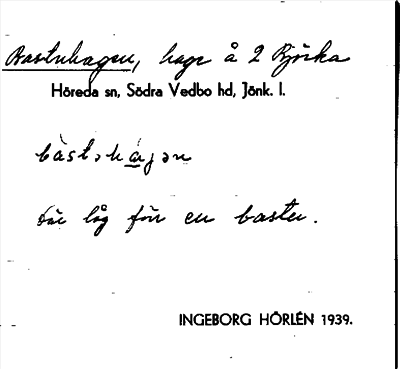 Bastuhagen, hage å 2 Björka
Höreda sn, Södra Vedbo hd, Jönk. l.
bàstɘhágɘn
Där låg förr en bastu.
INGEBORG HÖRLÉN 1939.